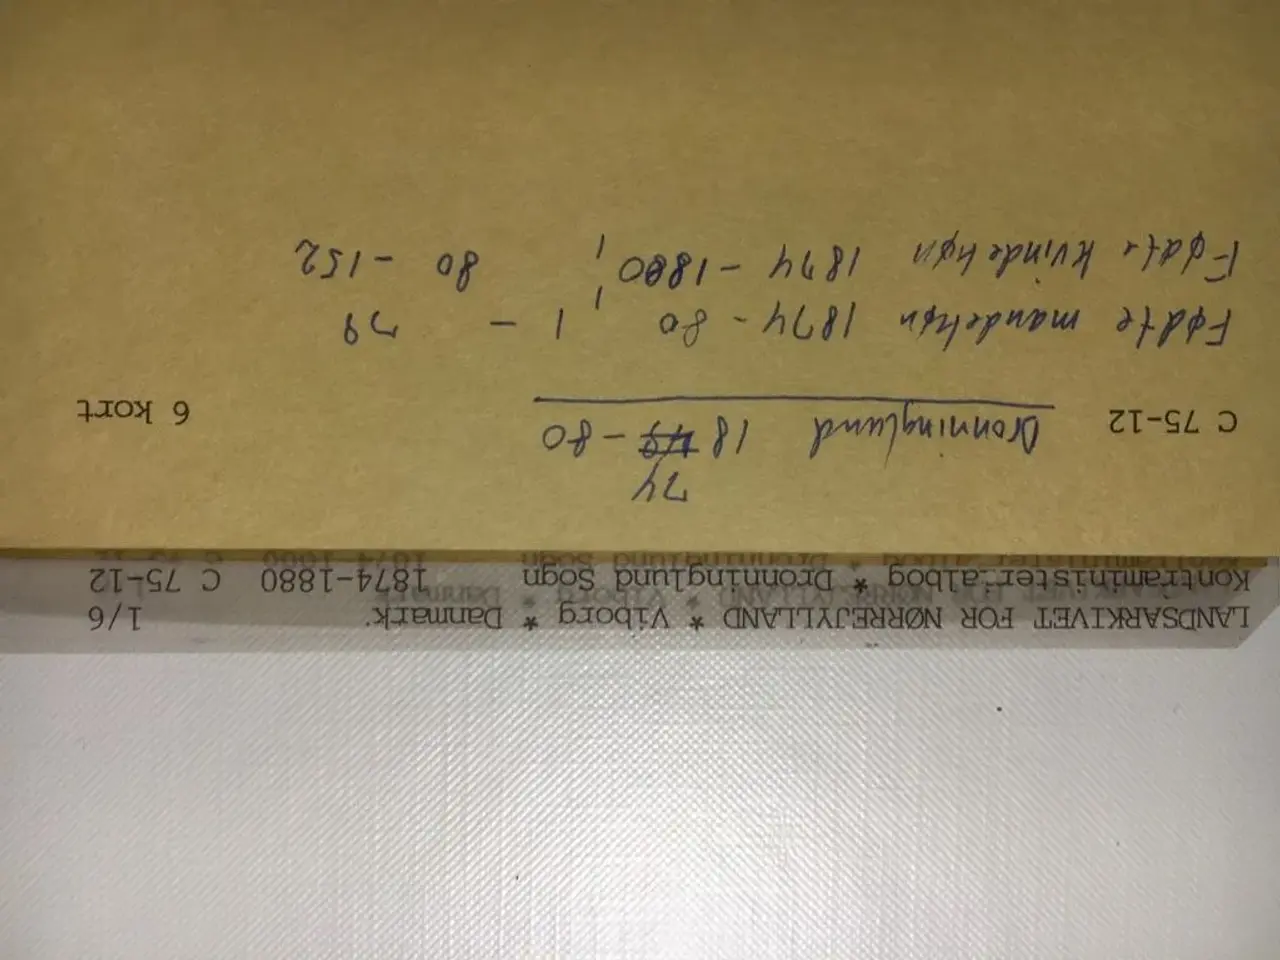 LANDSARKIVET FOR NØRREJYLLAND * Viborg * Danmark. 1/6
Kontraministerialbog * Dronninglund Sogn 1874-1880 C 75-12
74
C 75-12 Dronninglund 18 - 80 6 kort
Fødte mandekøn 1874 - 80, 1 - 79
Fødte kvindekøn 1874 - 1880, 80 - 152